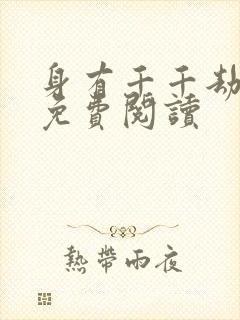 身有千千劫
免費閱讀
熱帶雨夜